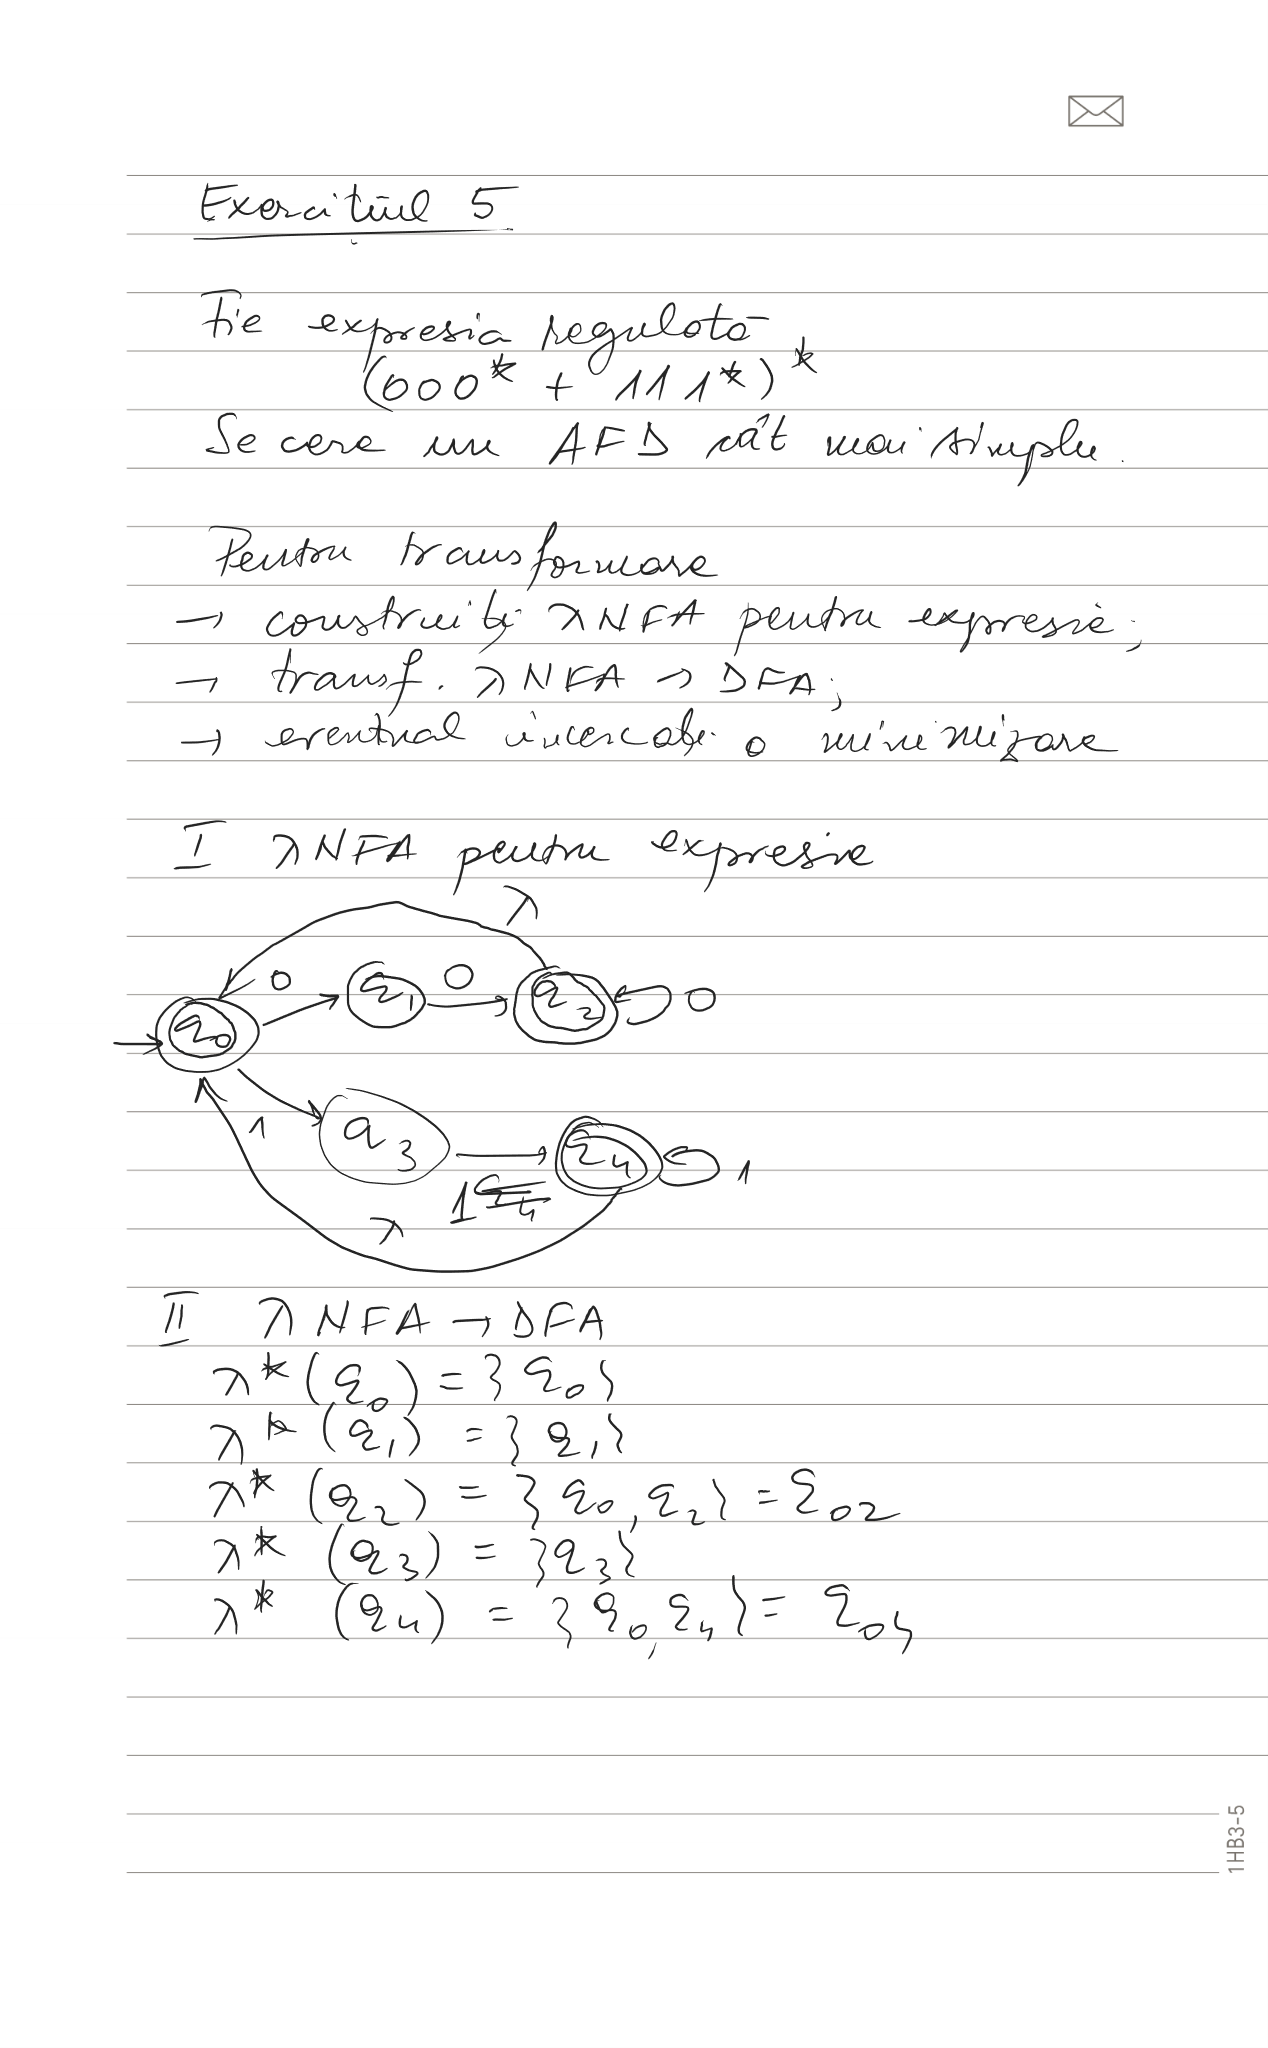 Exercițiul 5
Fie expresia regulată
(000* + 111*)*
Se cere un AFD cât mai simplu.
Pentru transformare
→ construiți λNFA pentru expresie;
→ transf. λNFA → DFA;
→ eventual încercați o minimizare
I λNFA pentru expresie
λ
0 0
q0 q1 q2 0
1 q3 q4 1
1
λ
II λNFA → DFA
λ*(q0) = {q0}
λ*(q1) = {q1}
λ*(q2) = {q0, q2} = q02
λ*(q3) = {q3}
λ*(q4) = {q0, q4} = q04
1HB3-5